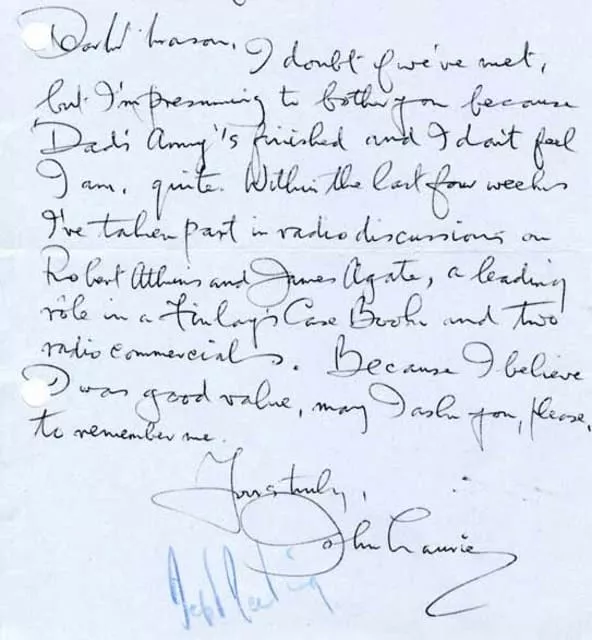 Dear Mr Mason, I doubt if we've met,
but I'm presuming to bother you because
'Dad's Army' is finished and I don't feel
I am, quite. Within the last four weeks
I've taken part in radio discussions on
Robert Atkins and James Agate, a leading
rôle in a Finlay's Case Book and two
radio commercials. Because I believe
I was good value, may I ask you, please,
to remember me.
Yours truly,
John Laurie